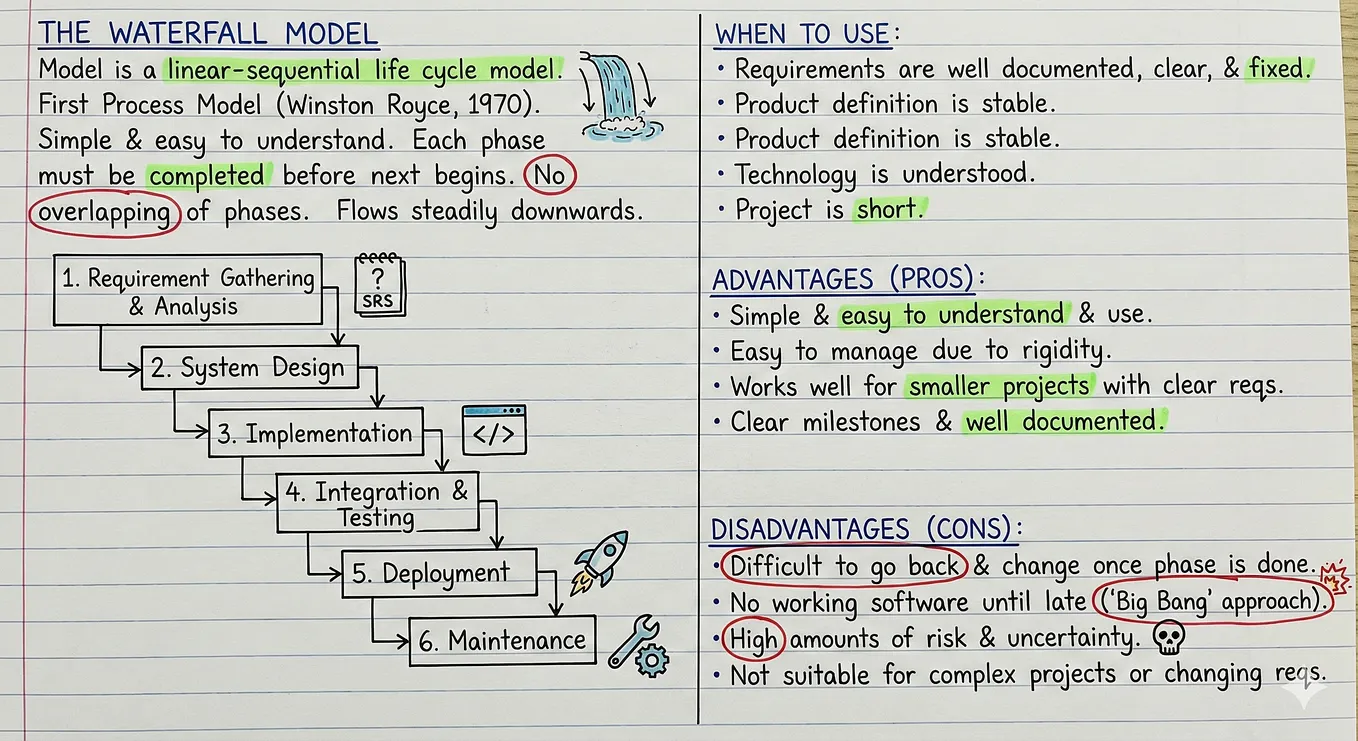 THE WATERFALL MODEL
Model is a linear-sequential life cycle model.
First Process Model (Winston Royce, 1970).
Simple & easy to understand. Each phase
must be completed before next begins. No
overlapping of phases. Flows steadily downwards.
1. Requirement Gathering
& Analysis
?
SRS
2. System Design
3. Implementation
</>
4. Integration &
Testing
5. Deployment
6. Maintenance
WHEN TO USE:
• Requirements are well documented, clear, & fixed.
• Product definition is stable.
• Product definition is stable.
• Technology is understood.
• Project is short.
ADVANTAGES (PROS):
• Simple & easy to understand & use.
• Easy to manage due to rigidity.
• Works well for smaller projects with clear reqs.
• Clear milestones & well documented.
DISADVANTAGES (CONS):
• Difficult to go back & change once phase is done.
• No working software until late ('Big Bang' approach).
• High amounts of risk & uncertainty.
• Not suitable for complex projects or changing reqs.